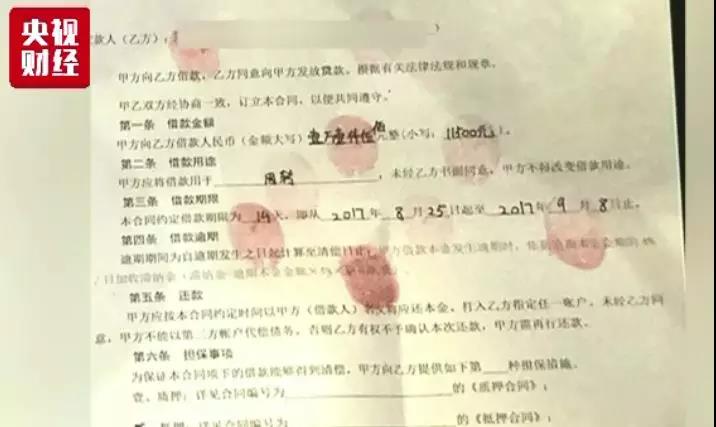 央视
财经
款人(乙方):
甲方向乙方借款,乙方同意向甲方发放贷款。根据有关法律法规和规章,
甲乙双方经协商一致,订立本合同,以便共同遵守。
第一条 借款金额
甲方向乙方借款人民币(金额大写)壹万壹仟伍佰元整(小写:11500元)。
第二条 借款用途
甲方应将借款用于 周转 ,未经乙方书面同意,甲方不得改变借款用途。
第三条 借款期限
本合同约定借款期限为 14天,即从 2017年 8月25日起至 2017年 9月 8日止。
第四条 借款逾期
逾期期间为自逾期发生之日起计算至清偿日止。甲方借款本金发生逾期时,
/日加收滞纳金(滞纳金=逾期本金金额×5%×逾期天数)。
第五条 还款
甲方应按本合同约定时间以甲方(借款人)名义将应还本金,打入乙方指定任一账户。未经乙方同
意,甲方不能以第三方帐户代偿债务,否则乙方有权不予确认本次还款,甲方需再行还款。
第六条 担保事项
为保证本合同项下的借款能够得到清偿,甲方向乙方提供如下第 种担保措施。
壹、质押:详见合同编号为 的《质押合同》;
抵押:详见合同编号为 的《抵押合同》;